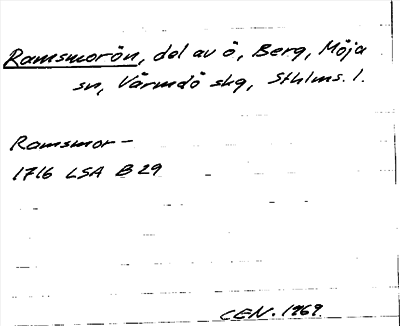 Ramsmorön, del av ö, Berg, Möja
sn, Värmdö skg, Sthlms. l.
Ramsmor-
1716 LSA B 29
CEN. 1969